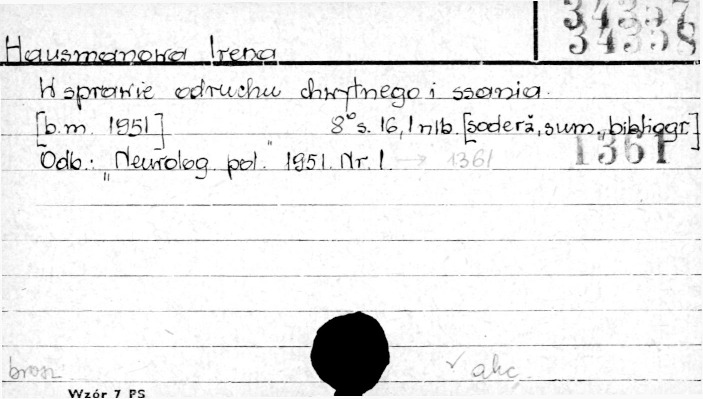 34357
34358
Hausmanowa Irena
W sprawie odruchu chwytnego i ssania.
[b.m. 1951] 8° s. 16, 1 nlb. [soderž, sum., bibliogr]
Odb.: "Neurolog. pol." 1951. Nr. 1. → 1361 1361
brosz
√ akc.
Wzór 7 PS